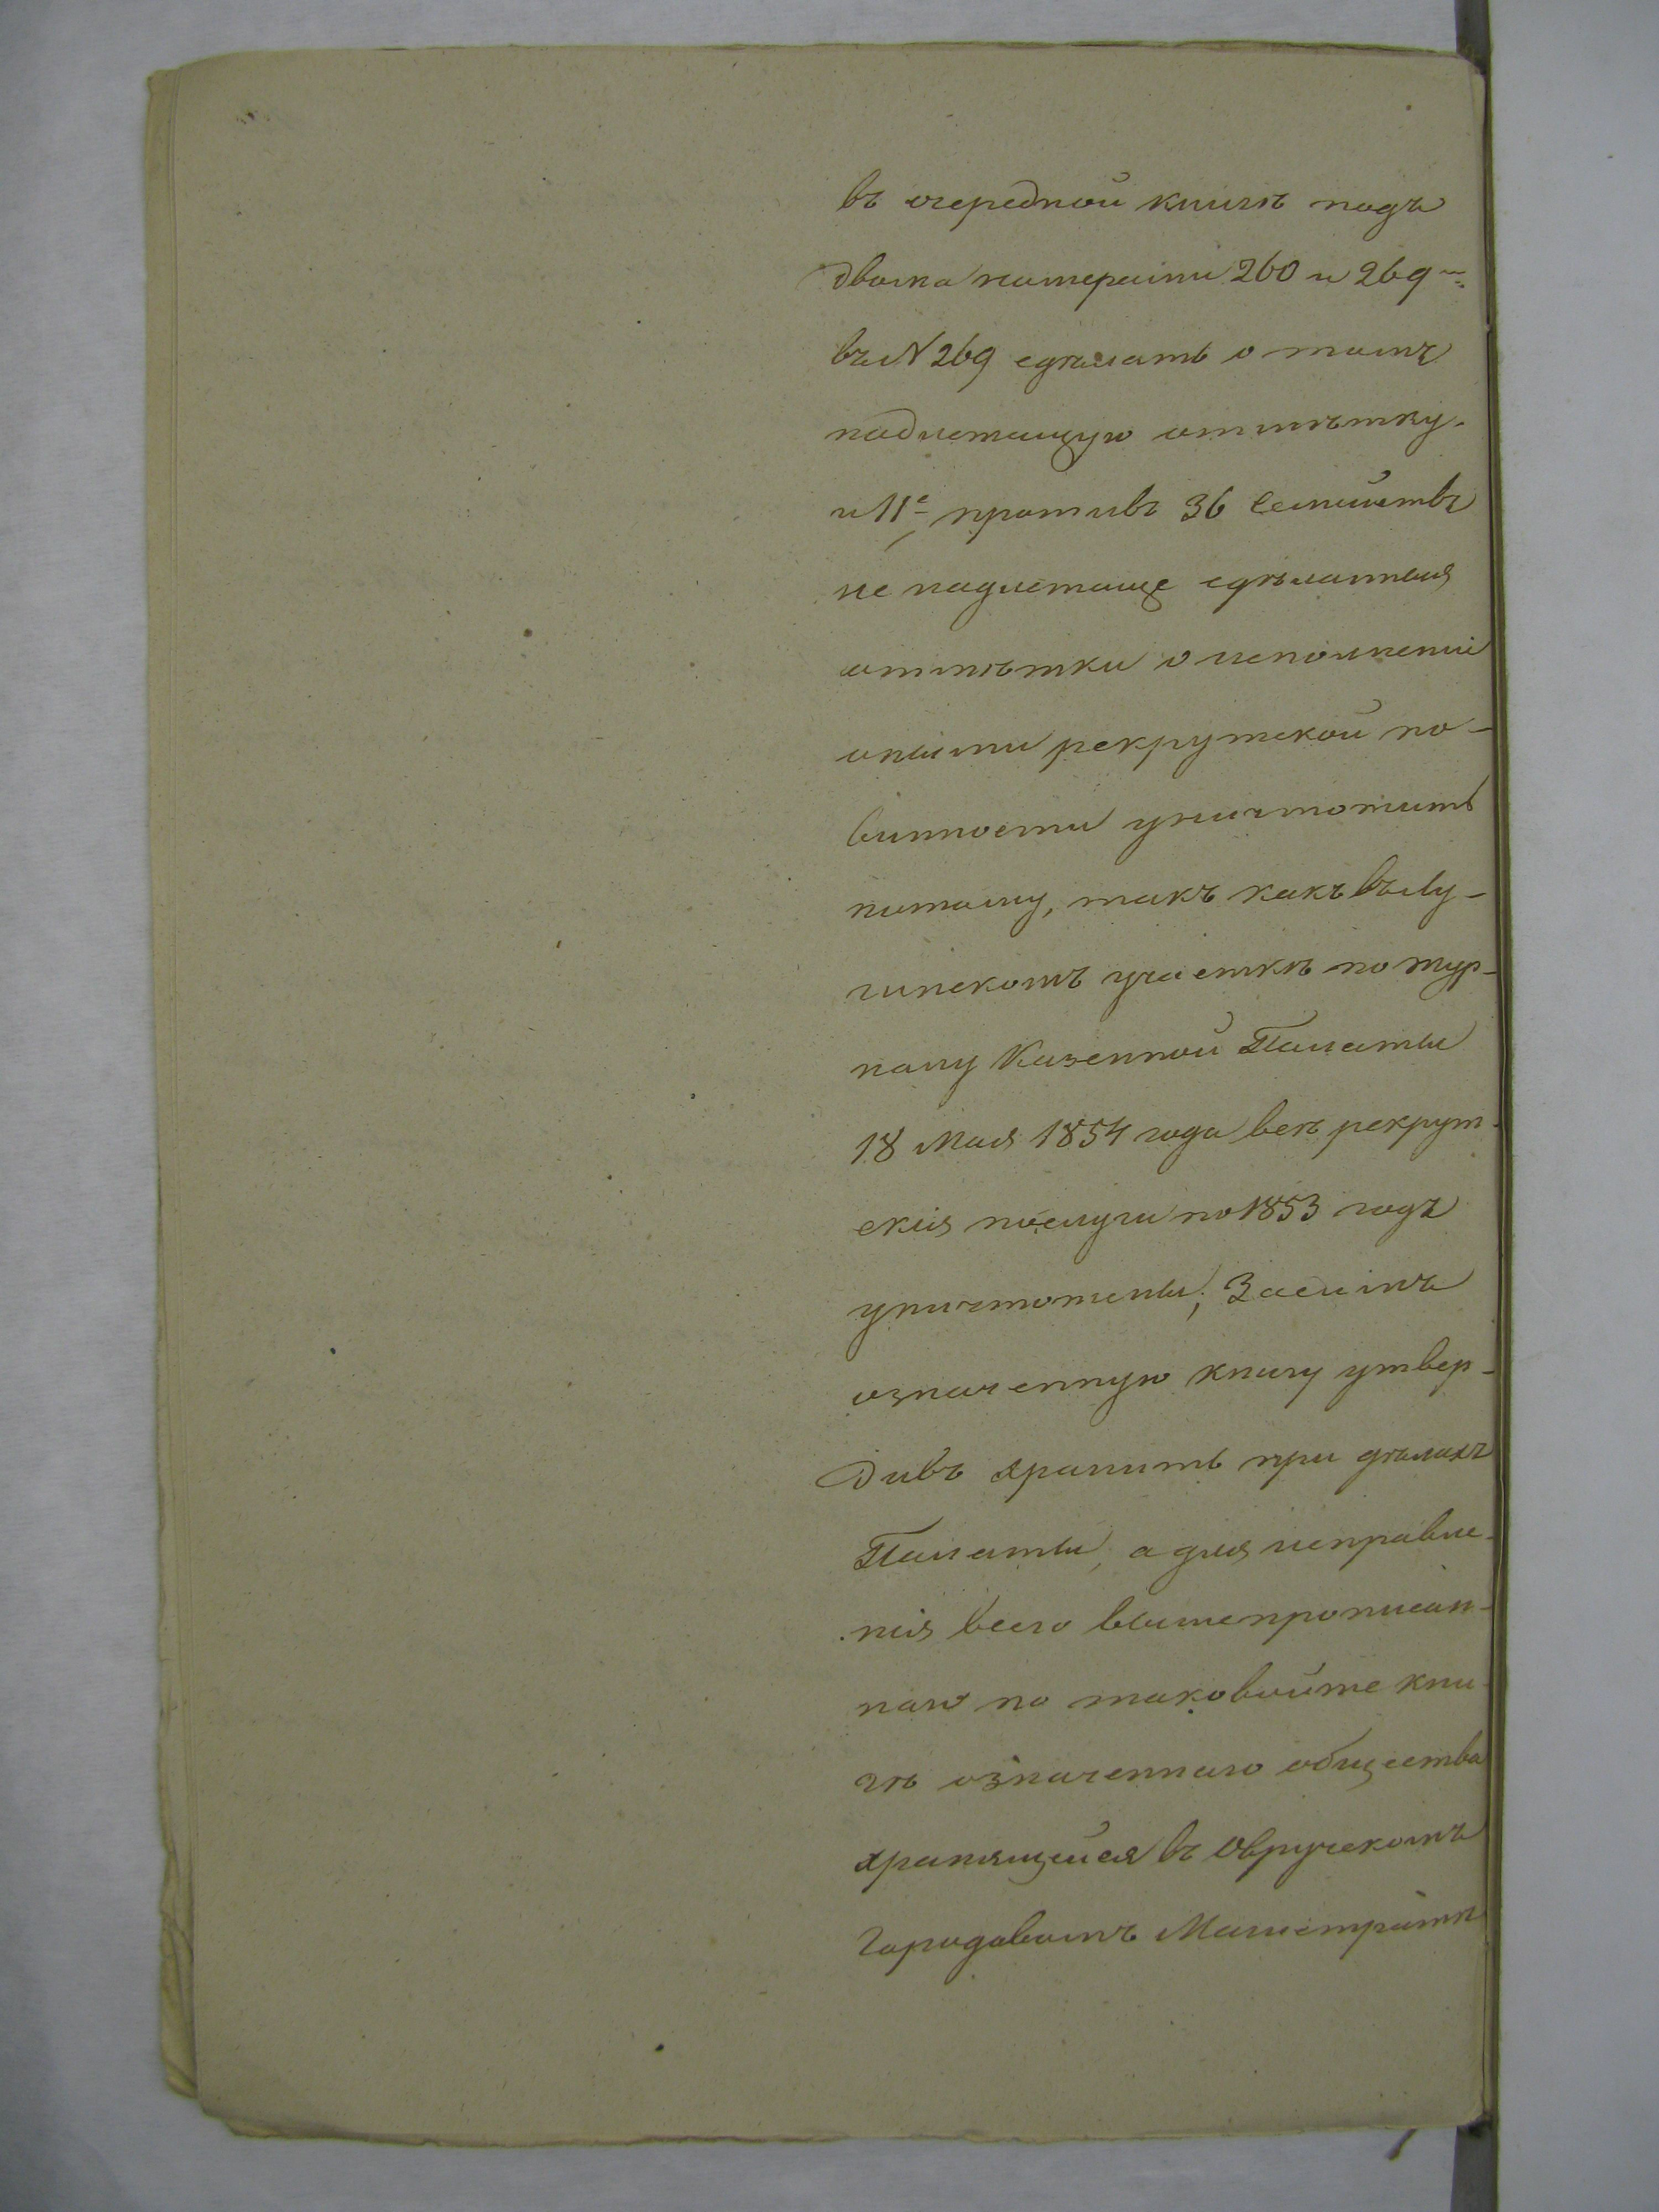 въ очередной книгѣ подъ
двома номерами 260 и 269 –
въ № 269 сдѣлать о томъ
надлежащую отмѣтку.
и 11е, противъ 36 Семействъ
не надлежаще сдѣланныя
отмѣтки о исполненіи
оными рекрутской по-
винности уничтожить
потому, такъ какъ въ Лу-
гинскомъ участкѣ по жур-
налу Казенной Палаты
18 Мая 1854 года всѣ рекрут-
скія послуги по 1853 годъ
уничтожены; Засимъ
означенную книгу утвер-
дивъ хранить при дѣлахъ
Палаты, а для исправле-
нія всего вышепрописан-
наго по таковойже кни-
гѣ означеннаго общества
хранящейся въ Овручскомъ
Городовомъ Магистратѣ